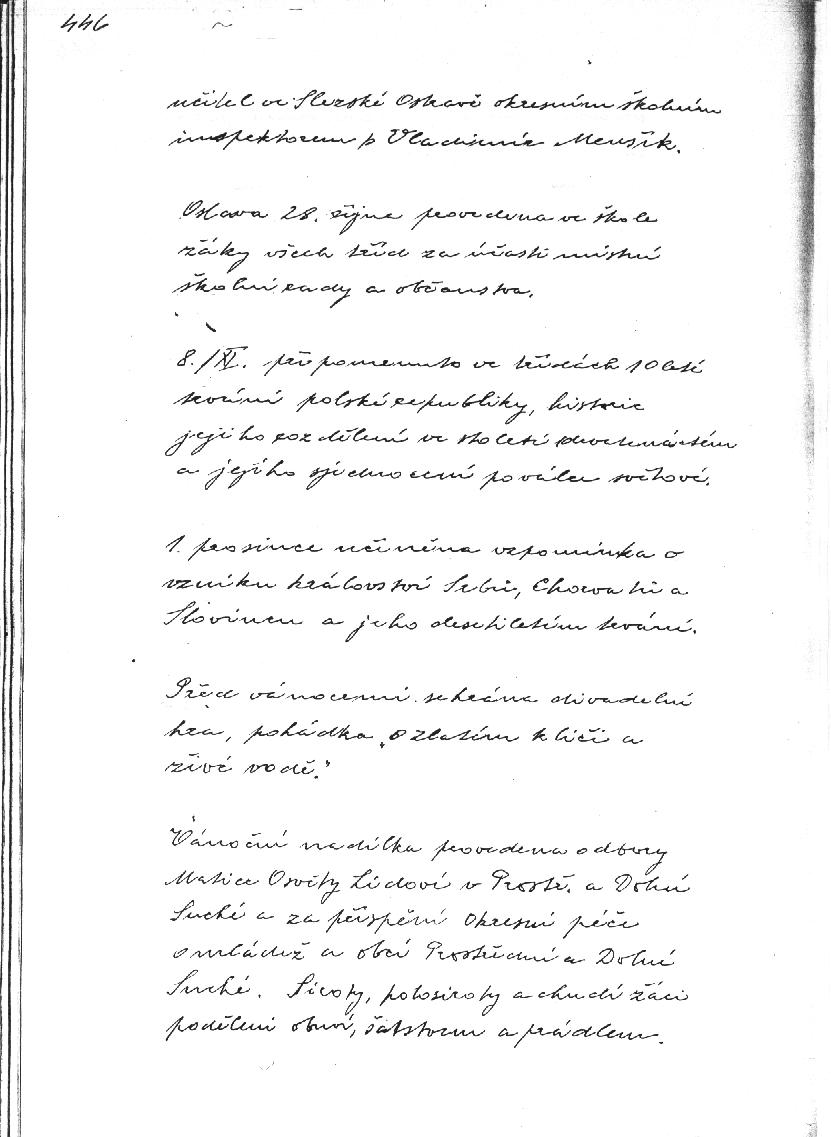 446
učitel ve Slezské Ostravě okresním školním
inspektorem p Vladimír Menšík.
Oslava 28. října provedena ve škole
žáky všech tříd za účasti místní
školní rady a občanstva.
8./XI. připomenuto ve třídách 10leté
trvání polské republiky, historie
jejího rozdělení ve století devatenáctém
a jejího sjednocení po válce světové.
1. prosince učiněna vzpomínka o
vzniku království Srbů, Chorvatů a
Slovinců a jeho desetiletém trvání.
Před vánocemi sehrána divadelní
hra, pohádka „O zlatém klíči a
živé vodě."
Vánoční nadílka provedena odbory
Matice Osvěty Lidové v Prostř. a Dolní
Suché a za přispění okresní péče
o mládež a obcí Prostřední a Dolní
Suché. Siroty, polosiroty a chudí žáci
poděleni obuví, šatstvem a prádlem.